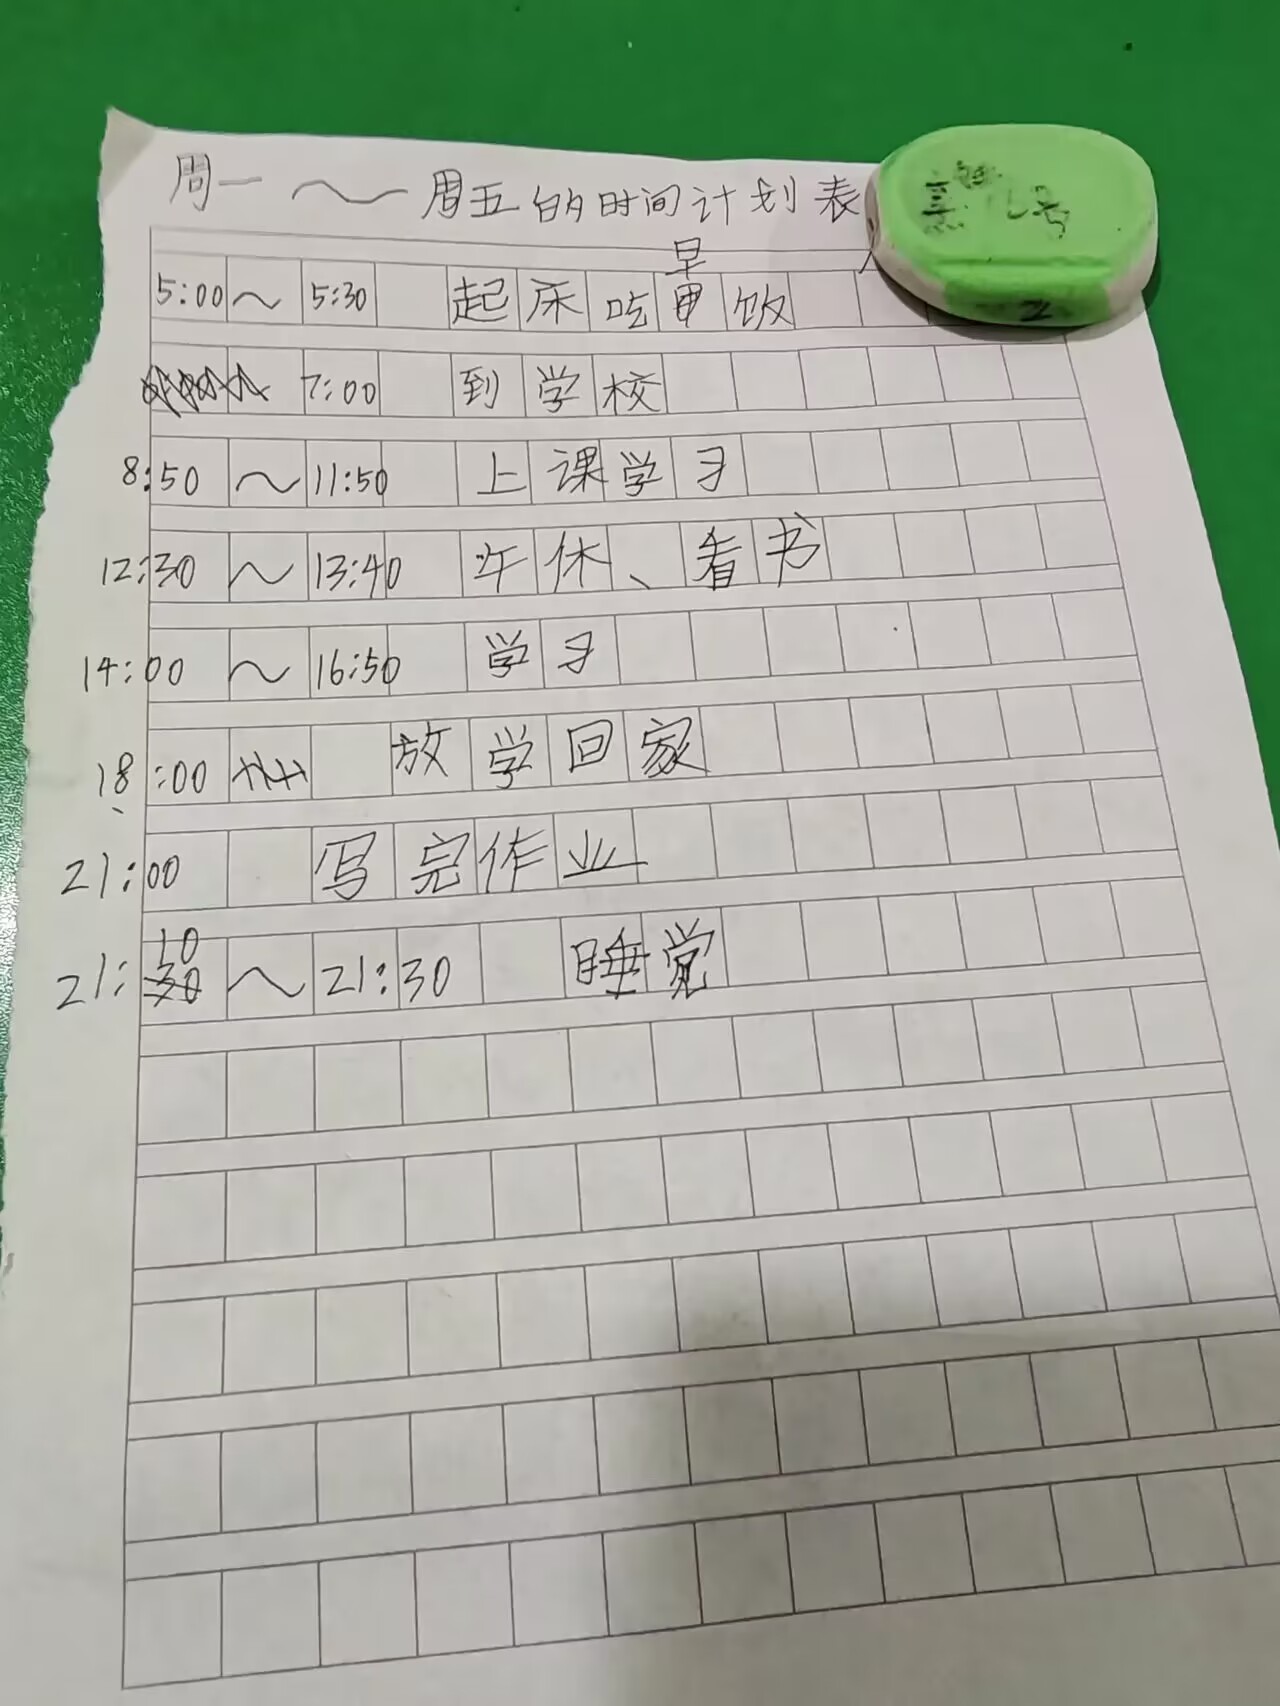 周一～周五的时间计划表
5:00～5:30 起床吃早饭
7:00 到学校
8:50～11:50 上课学习
12:30～13:40 午休、看书
14:00～16:50 学习
18:00 放学回家
21:00 写完作业
21:10～21:30 睡觉
2